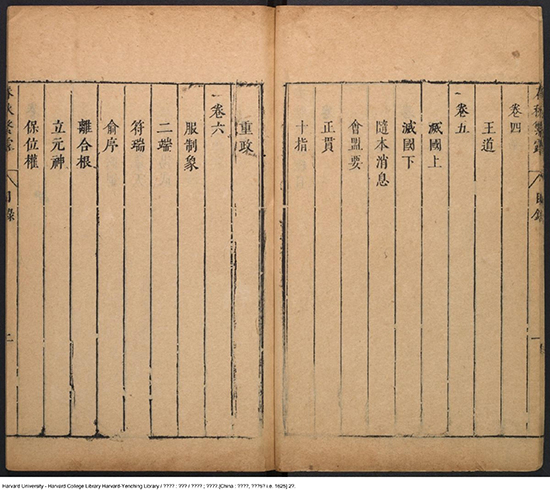 卷四
王道
卷五
滅國上
滅國下
隨本消息
會盟要
正貫
十指
重政
卷六
服制象
二端
符瑞
俞序
離合根
立元神
保位權
目錄
二
目錄
一
Harvard University - Harvard College Library Harvard-Yenching Library / ???? : ??? / ???? ; ???? [China : ????, ???5? i.e. 1625] 2?.